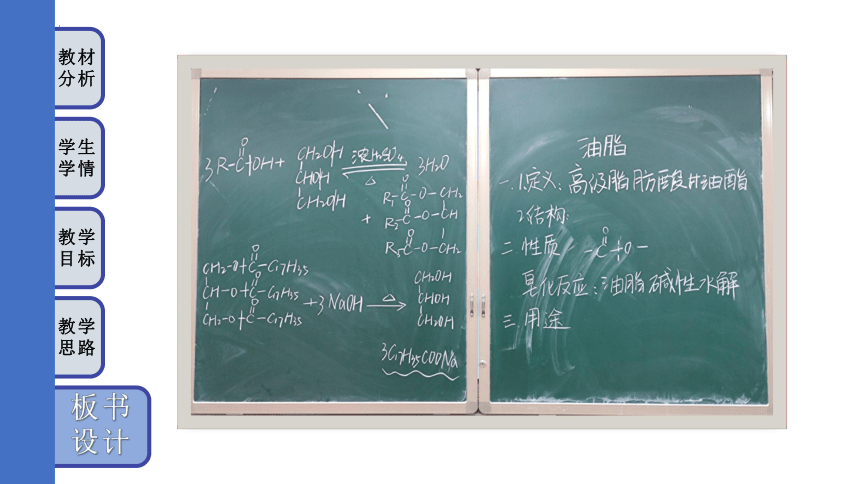 教材
分析
学生
学情
教学
目标
教学
思路
板书
设计
3R-C(=O)-OH + CH2OH CHOH CH2OH 浓H2SO4 △ 3H2O
+
R1-C(=O)-O-CH2
R2-C(=O)-O-CH
R3-C(=O)-O-CH2
CH2-O-C(=O)-C17H35
CH-O-C(=O)-C17H35
CH2-O-C(=O)-C17H35
+3NaOH △
CH2OH
CHOH
CH2OH
3C17H35COONa
油脂
一.1.定义:高级脂肪酸甘油酯
2.结构:
二.性质 -C(=O)-O-
皂化反应:油脂碱性水解
三.用途